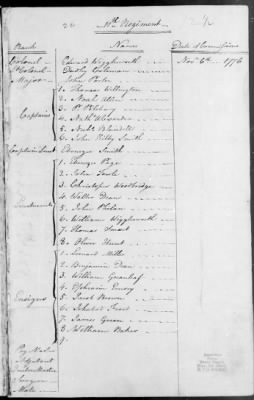 26 11th Regiment
Rank Names Date of Commissions
Colonel Edward Wigglesworth Nov 6th 1776
Lt Colonel Dudley Coleman
Major John Porter
Captains 1. Thomas Willington
2. Noah Allen
3.
4. Nathl Alexander
5. Nichs Blaisdell
6. John Kilby Smith
Captain Lieut Ebenezer Smith
Lieutenants 1. Ebenezr Page
2. John Fowle
3. Christopher Woodbridge
4. Walter Dean
5. John Phelan
6. William Wigglesworth
7. Thomas Smart
8. Oliver Hunt
Ensigns 1. Leonard Miller
2. Benjamin Dean
3. William Greenleaf
4. Ephraim Emery
5. Jacob Brown
6. Frost
7. James Green
8. William Baker
9.
Pay Mastr
Adjutant
Quarter Master
Surgeon
Mate